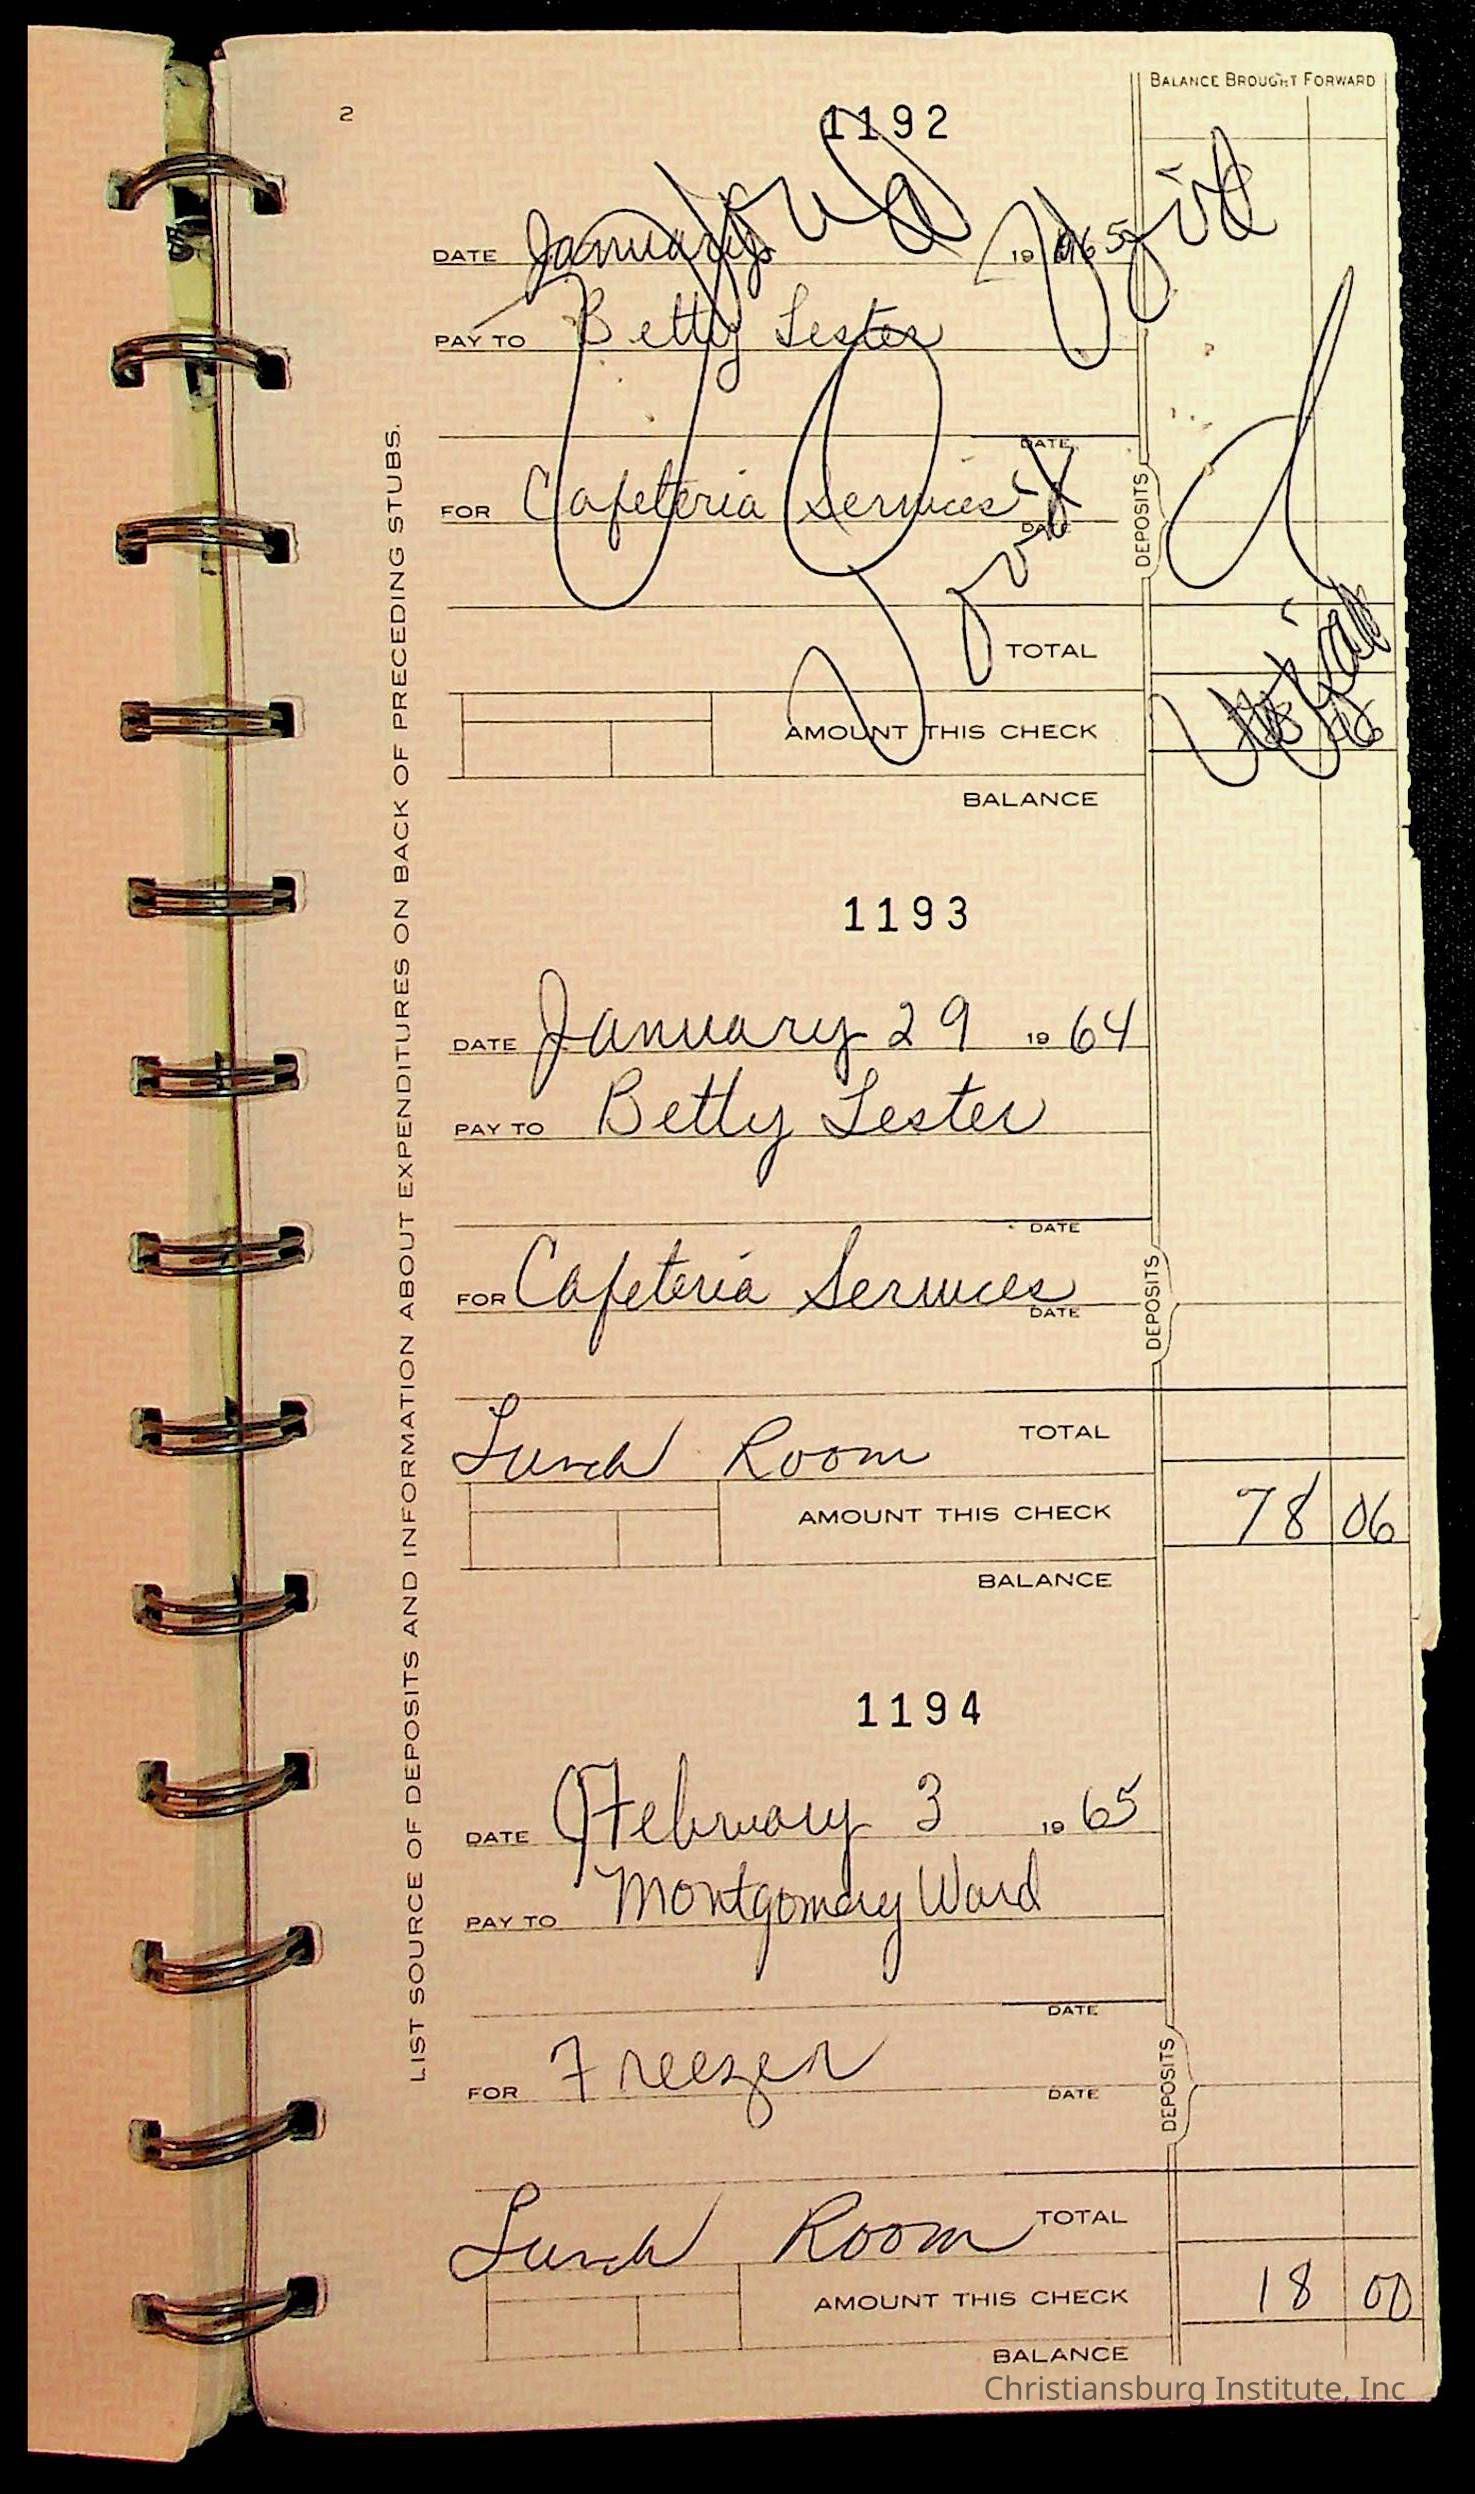 BALANCE BROUGHT FORWARD
2
1192
DATE January 19 65
PAY TO Betty Lester
DATE
FOR Cafeteria Services
DATE
DEPOSITS
Void
Void
Void
Void
TOTAL
AMOUNT THIS CHECK
BALANCE
LIST SOURCE OF DEPOSITS AND INFORMATION ABOUT EXPENDITURES ON BACK OF PRECEDING STUBS.
1193
DATE January 29 19 64
PAY TO Betty Lester
DATE
FOR Cafeteria Services
DATE
DEPOSITS
Lunch Room TOTAL
AMOUNT THIS CHECK 78 06
BALANCE
1194
DATE February 3 19 65
PAY TO Montgomery Ward
DATE
FOR Freezer
DATE
DEPOSITS
Lunch Room TOTAL
AMOUNT THIS CHECK 18 00
BALANCE
Christiansburg Institute, Inc